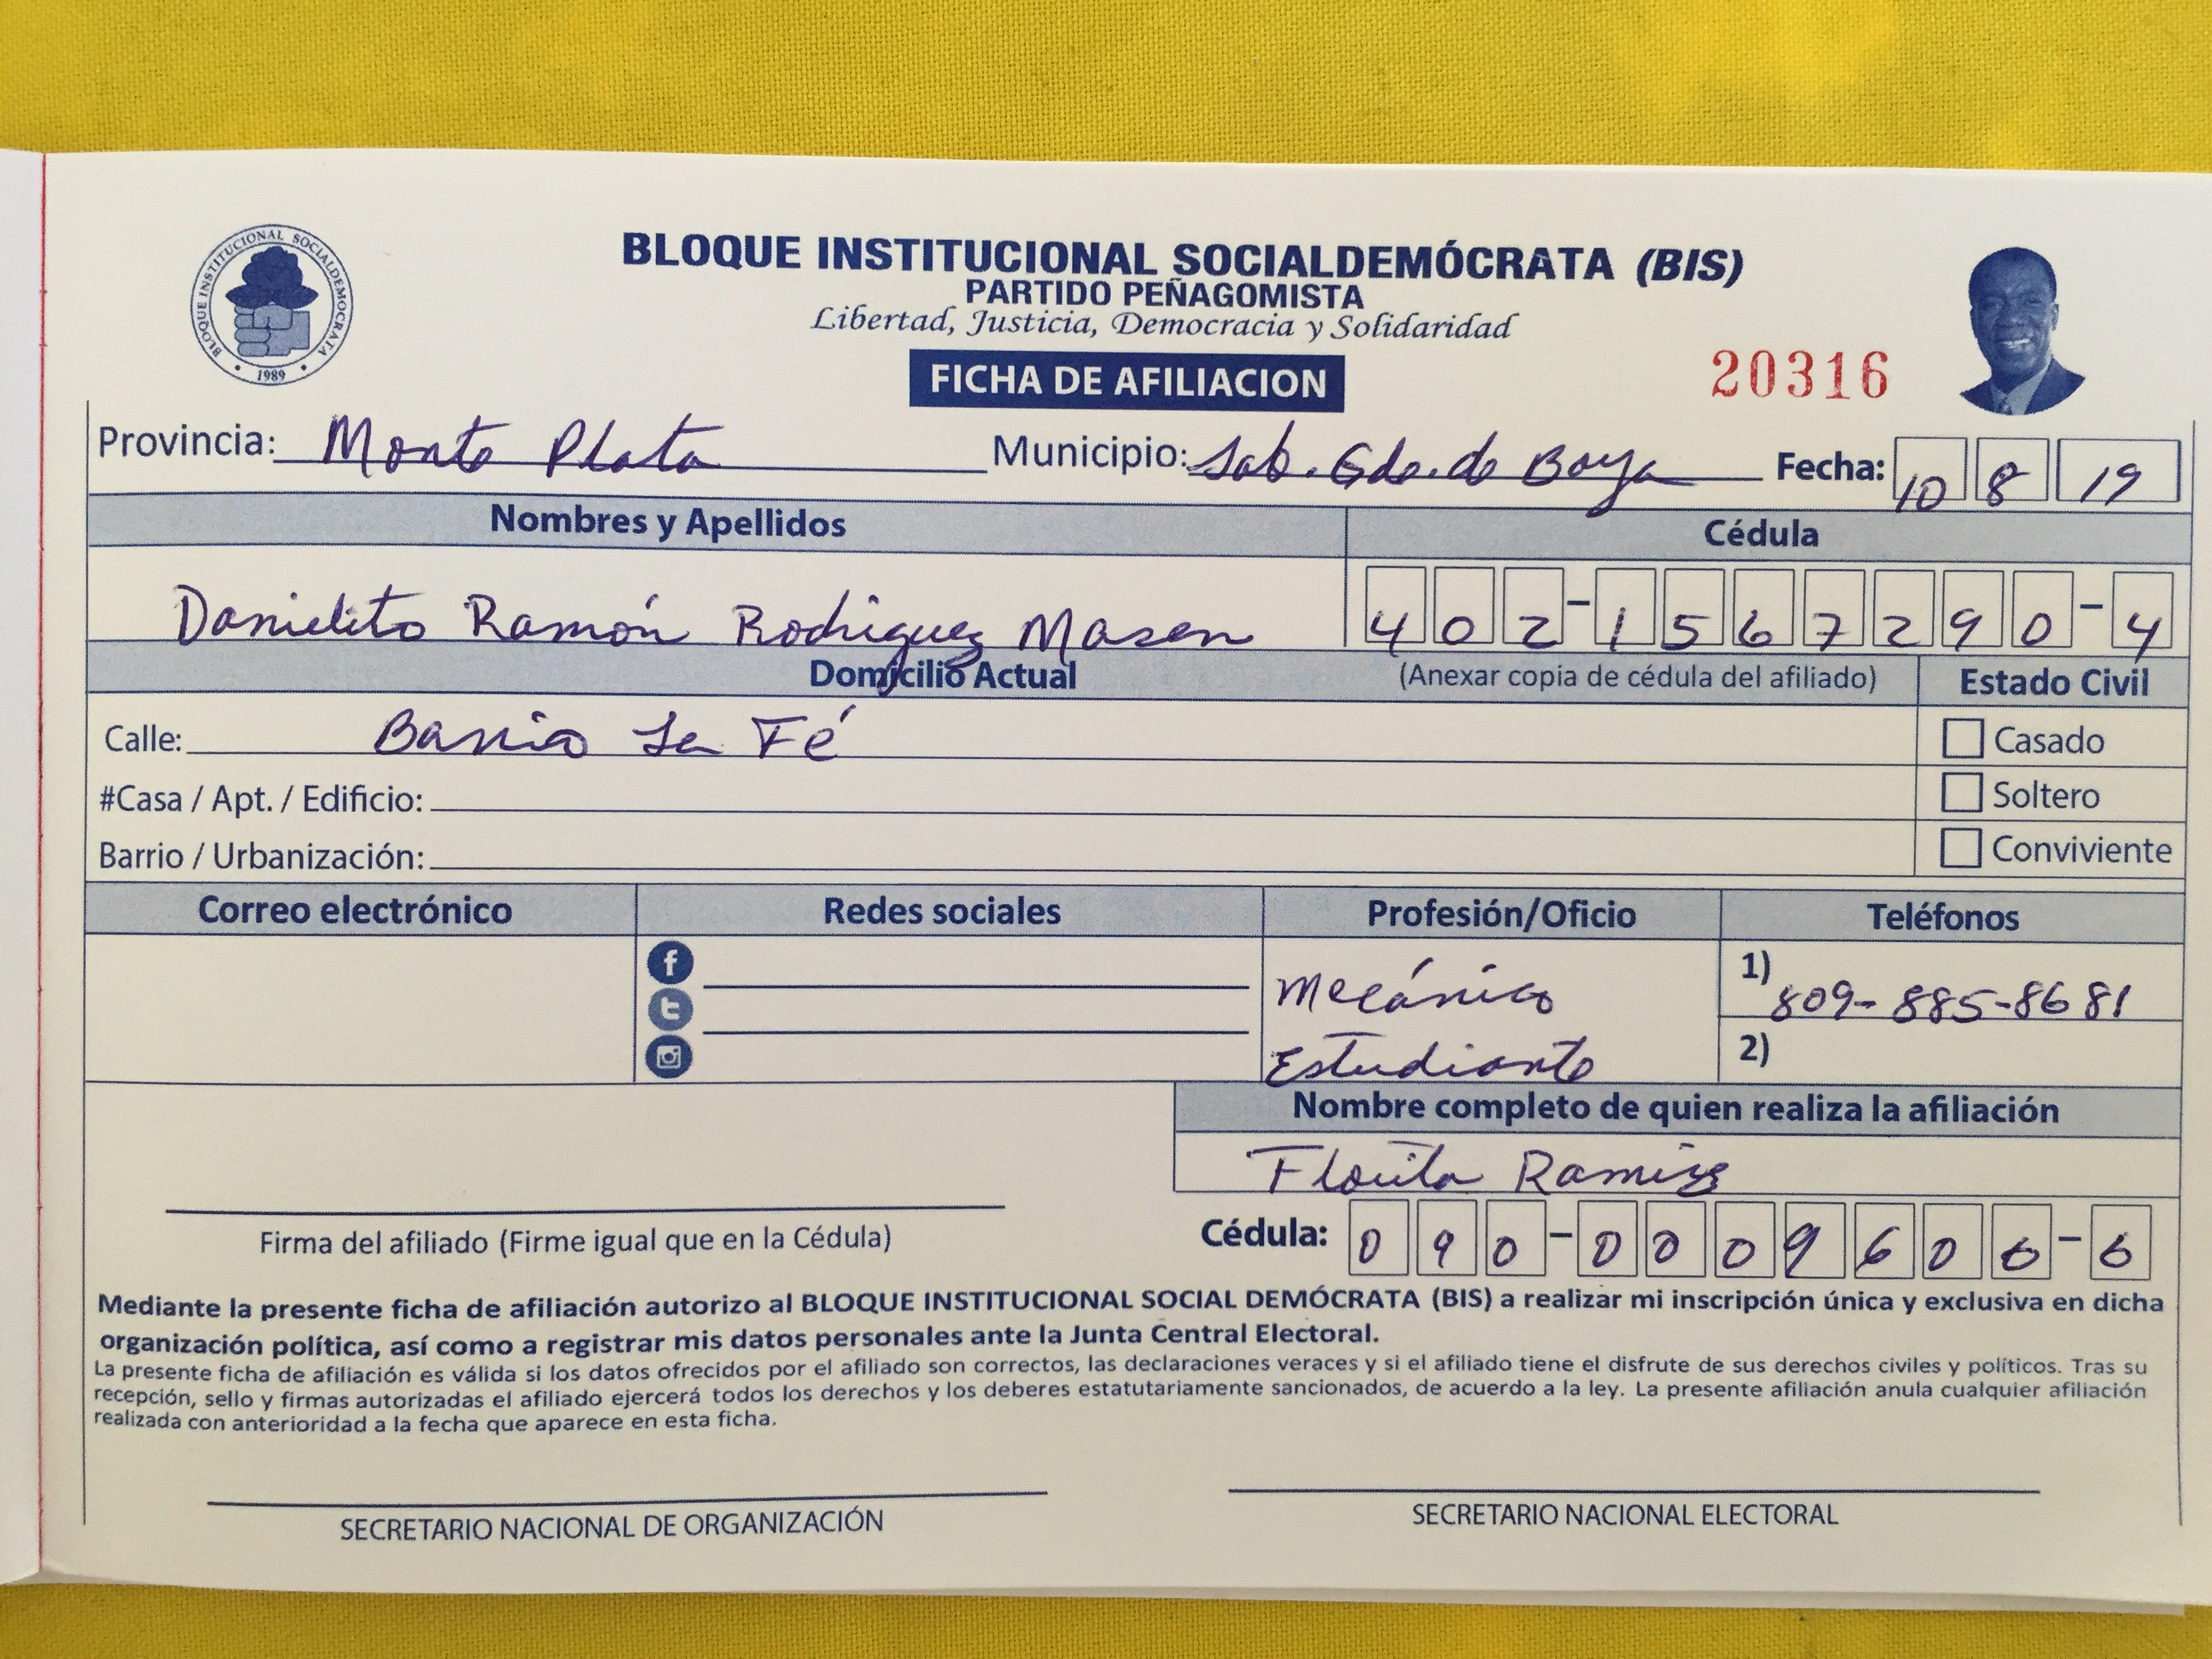 BLOQUE INSTITUCIONAL SOCIALDEMOCRATA
1989
BLOQUE INSTITUCIONAL SOCIALDEMÓCRATA (BIS)
PARTIDO PEÑAGOMISTA
Libertad, Justicia, Democracia y Solidaridad
FICHA DE AFILIACION
20316
Provincia: Monte Plata Municipio: Sab. Gde. de Boya Fecha: 10 8 19
Nombres y Apellidos Cédula
Danielito Ramón Rodriguez Masen 402-1567290-4
Domicilio Actual (Anexar copia de cédula del afiliado) Estado Civil
Calle: Barrio La Fé Casado
#Casa / Apt. / Edificio: Soltero
Barrio / Urbanización: Conviviente
Correo electrónico Redes sociales Profesión/Oficio Teléfonos
Mecánico 1) 809-885-8681
Estudiante 2)
Nombre completo de quien realiza la afiliación
Ramirez
Firma del afiliado (Firme igual que en la Cédula) Cédula: 090-0009606-6
Mediante la presente ficha de afiliación autorizo al BLOQUE INSTITUCIONAL SOCIAL DEMÓCRATA (BIS) a realizar mi inscripción única y exclusiva en dicha
organización política, así como a registrar mis datos personales ante la Junta Central Electoral.
La presente ficha de afiliación es válida si los datos ofrecidos por el afiliado son correctos, las declaraciones veraces y si el afiliado tiene el disfrute de sus derechos civiles y políticos. Tras su
recepción, sello y firmas autorizadas el afiliado ejercerá todos los derechos y los deberes estatutariamente sancionados, de acuerdo a la ley. La presente afiliación anula cualquier afiliación
realizada con anterioridad a la fecha que aparece en esta ficha.
SECRETARIO NACIONAL DE ORGANIZACIÓN SECRETARIO NACIONAL ELECTORAL